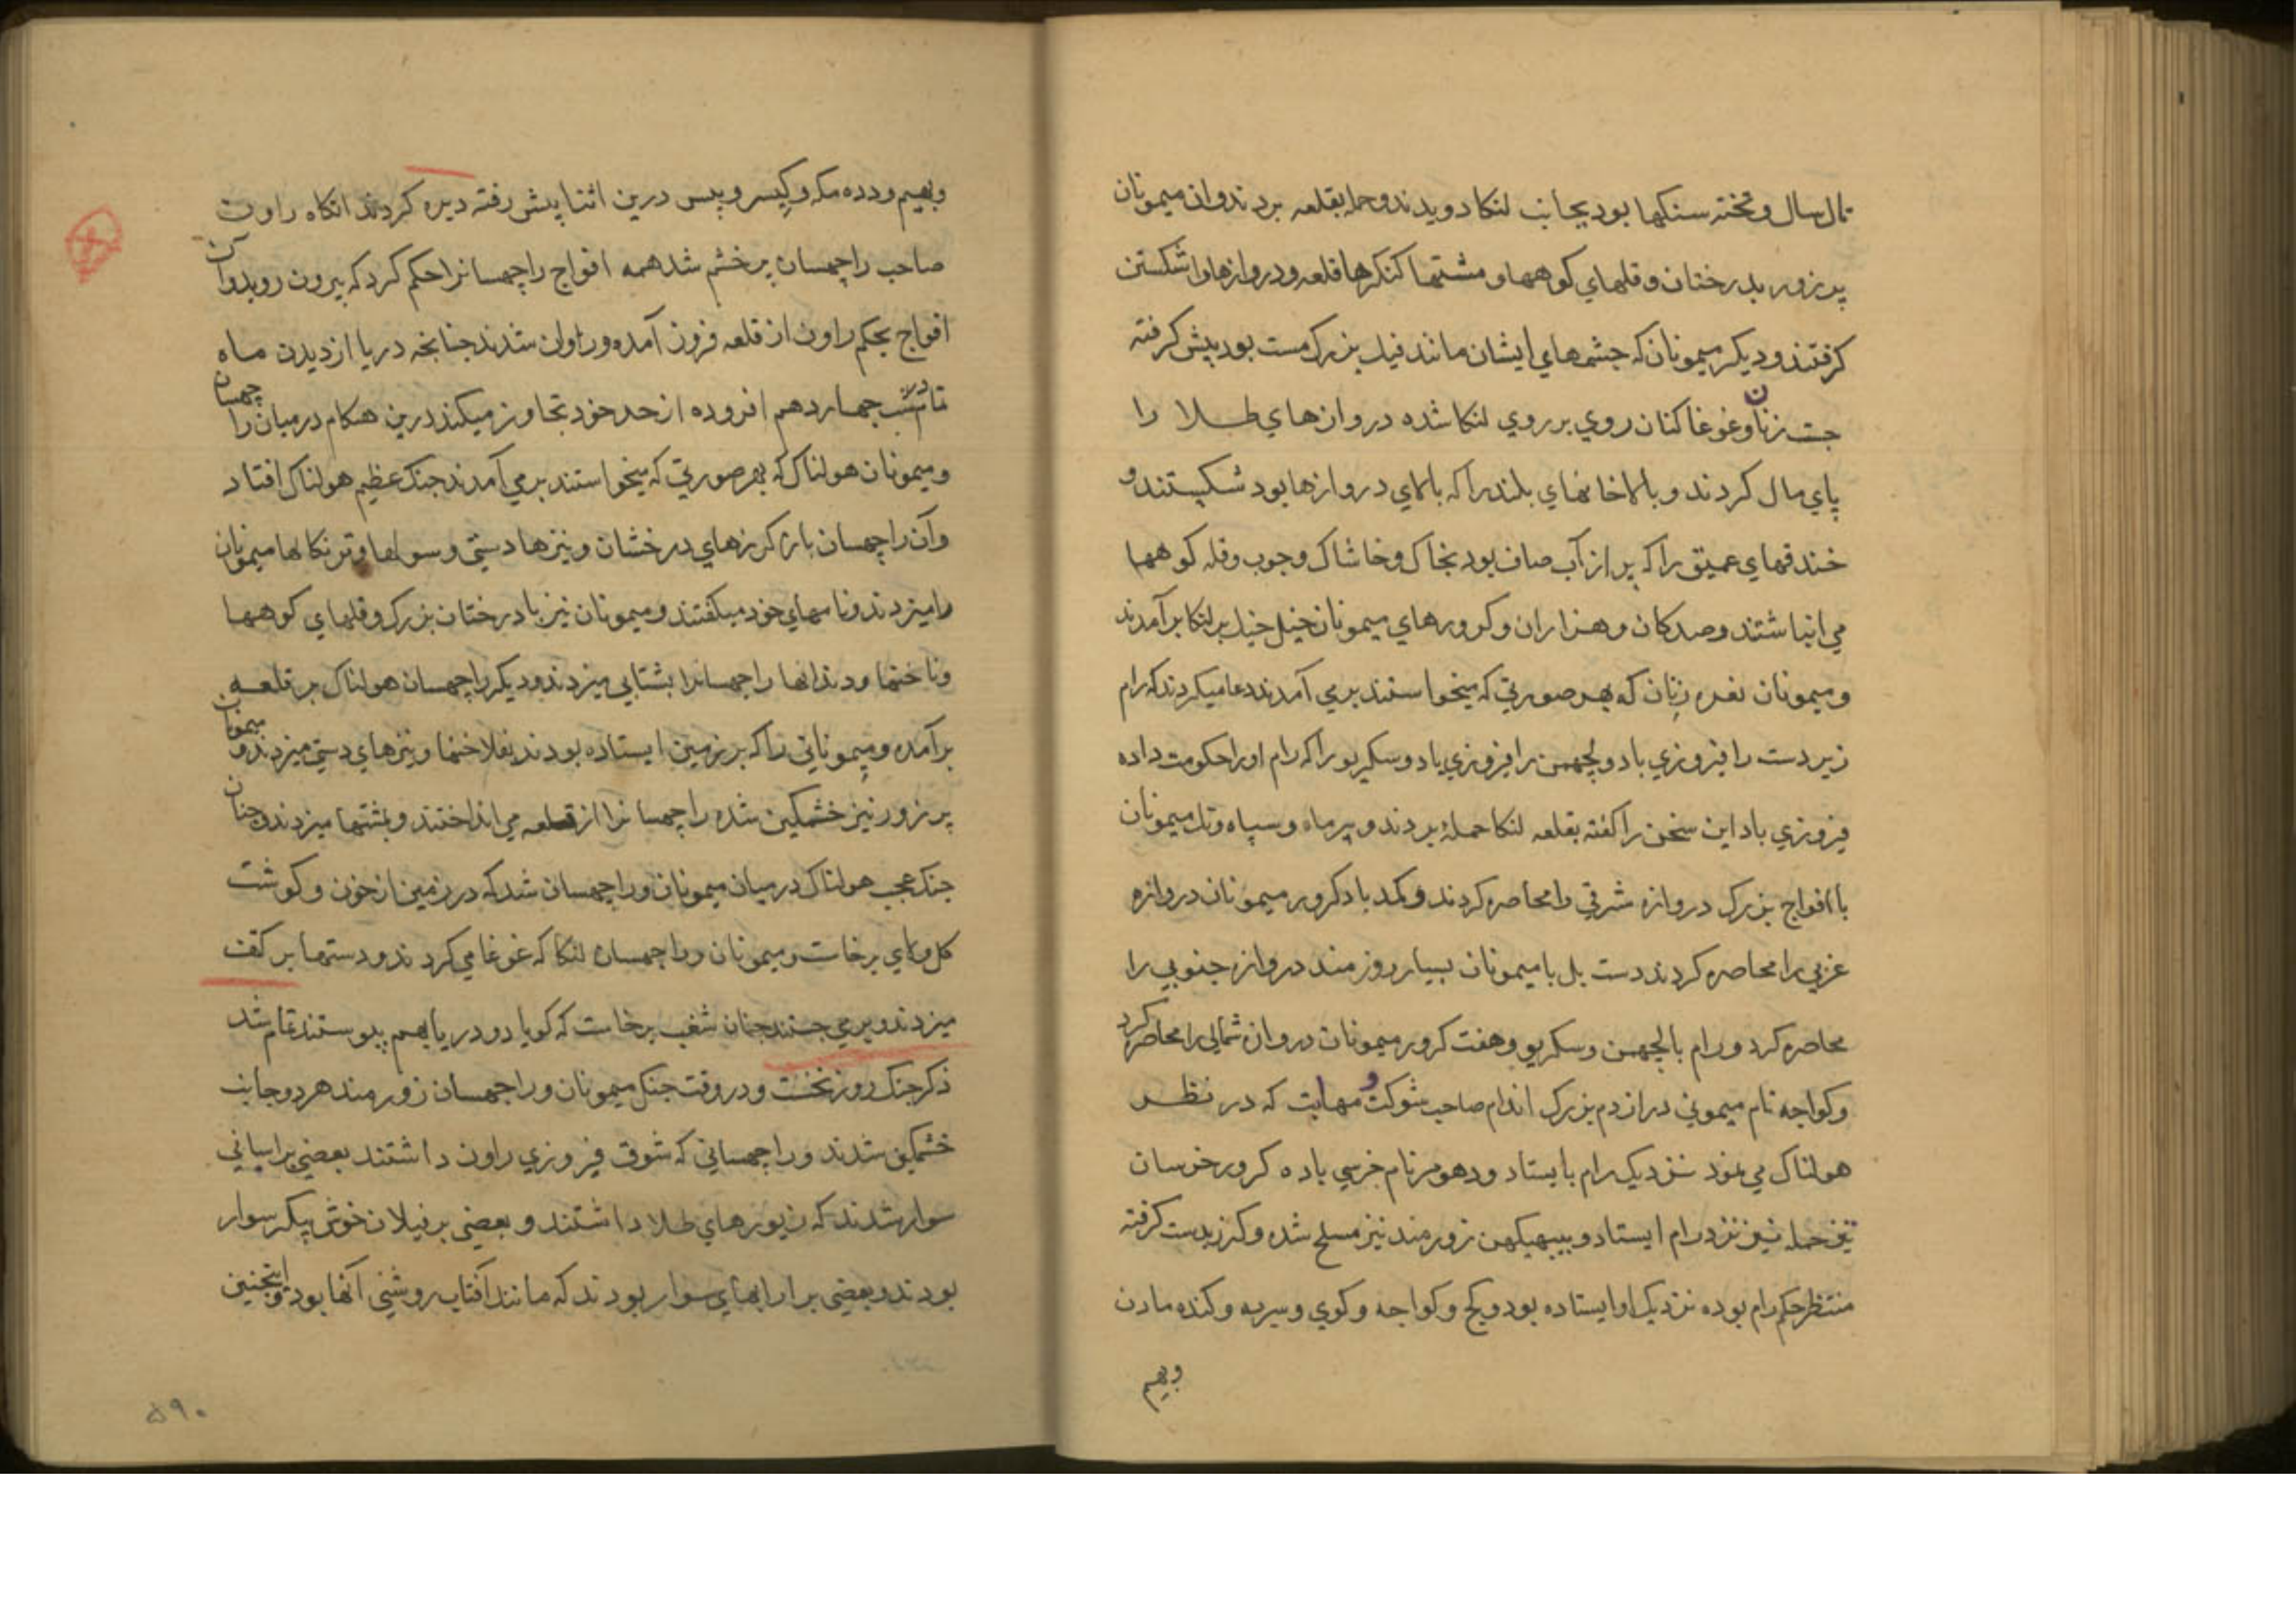 تال سال و تخته سنكها بود بجانب لنكا دويدند و حمله بقلعه بردند و ان ميمونان
پر زور بدرختان و قلهاي كوهها و مشتها كنكرها قلعه و دروازها را شكستن
كرفتند و ديكر ميمونان كه جثه‌هاي ايشان مانند فيل بزرك مست بود پيش كرفته
جست زنان و غوغا كنان روي بر روي لنكا شده دروازهاي طلا را
پاي مال كردند و بالاخانهاي بلند را كه بالاي دروازها بود شكستند و
خندقهاي عميق را كه پر از آب صاف بود بخاك و خاشاك و چوب و قله كوهها
مي انباشتند و صدكان و هزاران و كرورهاي ميمونان خيل خيل بر لنكا برآمدند
و ميمونان نعره زنان كه بهر صورتي كه ميخواستند برمي آمدند دعا ميكردند كه رام
زبردست را فيروزي باد و لچهمن را فيروزي باد و سكريو را كه رام او را حكومت داده
فيروزي باد اين سخن را كفته بقلعه لنكا حمله بردند و بيرماه و سپاه و تك ميمونان
با افواج بزرك دروازه شرقي را محاصره كردند و كمد با ده كرور ميمونان دروازه
غربي را محاصره كردند دست بل با ميمونان بسيار زورمند دروازه جنوبي را
محاصره كرد و رام با لچهمن و سكريو و هفت كرور ميمونان دروازه شمالي را محاصره كرد
و كواجه نام ميموني دراز دم بزرك اندام صاحب شوكت و مهابت كه در نظر
هولناك مي نمود نزديك رام بايستاد و دهومر نام خرسي با ده كرور خرسان
تيز حمله نيز نزد رام ايستاد و ببهيكهن زورمند نيز مسلح شده و كرز بدست كرفته
منتظر حكم رام بوده نزديك او ايستاده بود و كج و كواجه و كوي و سربه و كنده مادن
وبهيم
وبهيم و دده مكه و كيسر و پس درين اثنا پيش رفته ديره كردند انكاه راون
صاحب راچهسان پر خشم شد همه افواج راچهسانرا حكم كرد كه بيرون رويد و آن
افواج بحكم راون از قلعه فرود آمده و روان شدند چنانچه دريا از ديدن ماه
تا شب چهاردهم افزوده از حد خود تجاوز ميكند درين هنكام درميان راچهسان
و ميمونان هولناك كه بهر صورتي كه ميخواستند بر مي آمدند جنك عظيم هولناك افتاد
و آن راچهسان باز كرزهاي درخشان و نيزها دستي و سولها و تونكالها ميمونان
را ميزدند و نامهاي خود ميكفتند و ميمونان نيز با درختان بزرك و قلهاي كوهها
و ناخنها و دندانها راچهسانرا بشتابي ميزدند و ديكر راچهسان هولناك بر قلعه
برآمده و ميموناني را كه بر زمين ايستاده بودند بفلاخنها و نيزهاي دستي ميزدند و ميمونان
پر زور نيز خشمكين شده راچهسانرا از قلعه مي انداختند و بمشتها ميزدند و چنان
جنك عجب هولناك درميان ميمونان و راچهسان شد كه در زمين از خون و كوشت
كل و لاي برخاست و ميمونان و راچهسان لنكا كه غوغا مي كردند و دستها بر كتف
ميزدند و بر مي جستند چنان شغب برخاست كه كويا دو دريا بهم پيوستند تمام شد
ذكر جنك روز نخست و در وقت جنك ميمونان و راچهسان زورمند هر دو جانب
خشمكين شدند و راچهساني كه شوق فيروزي راون داشتند بعضي بر اسپاني
سوار شدند كه زيورهاي طلا داشتند و بعضي بر فيلان خوش پيكر سوار
بودند و بعضي بر ارابهاي سوار بودند كه مانند آفتاب روشني آنها بود و اينچنين
۵۹۰